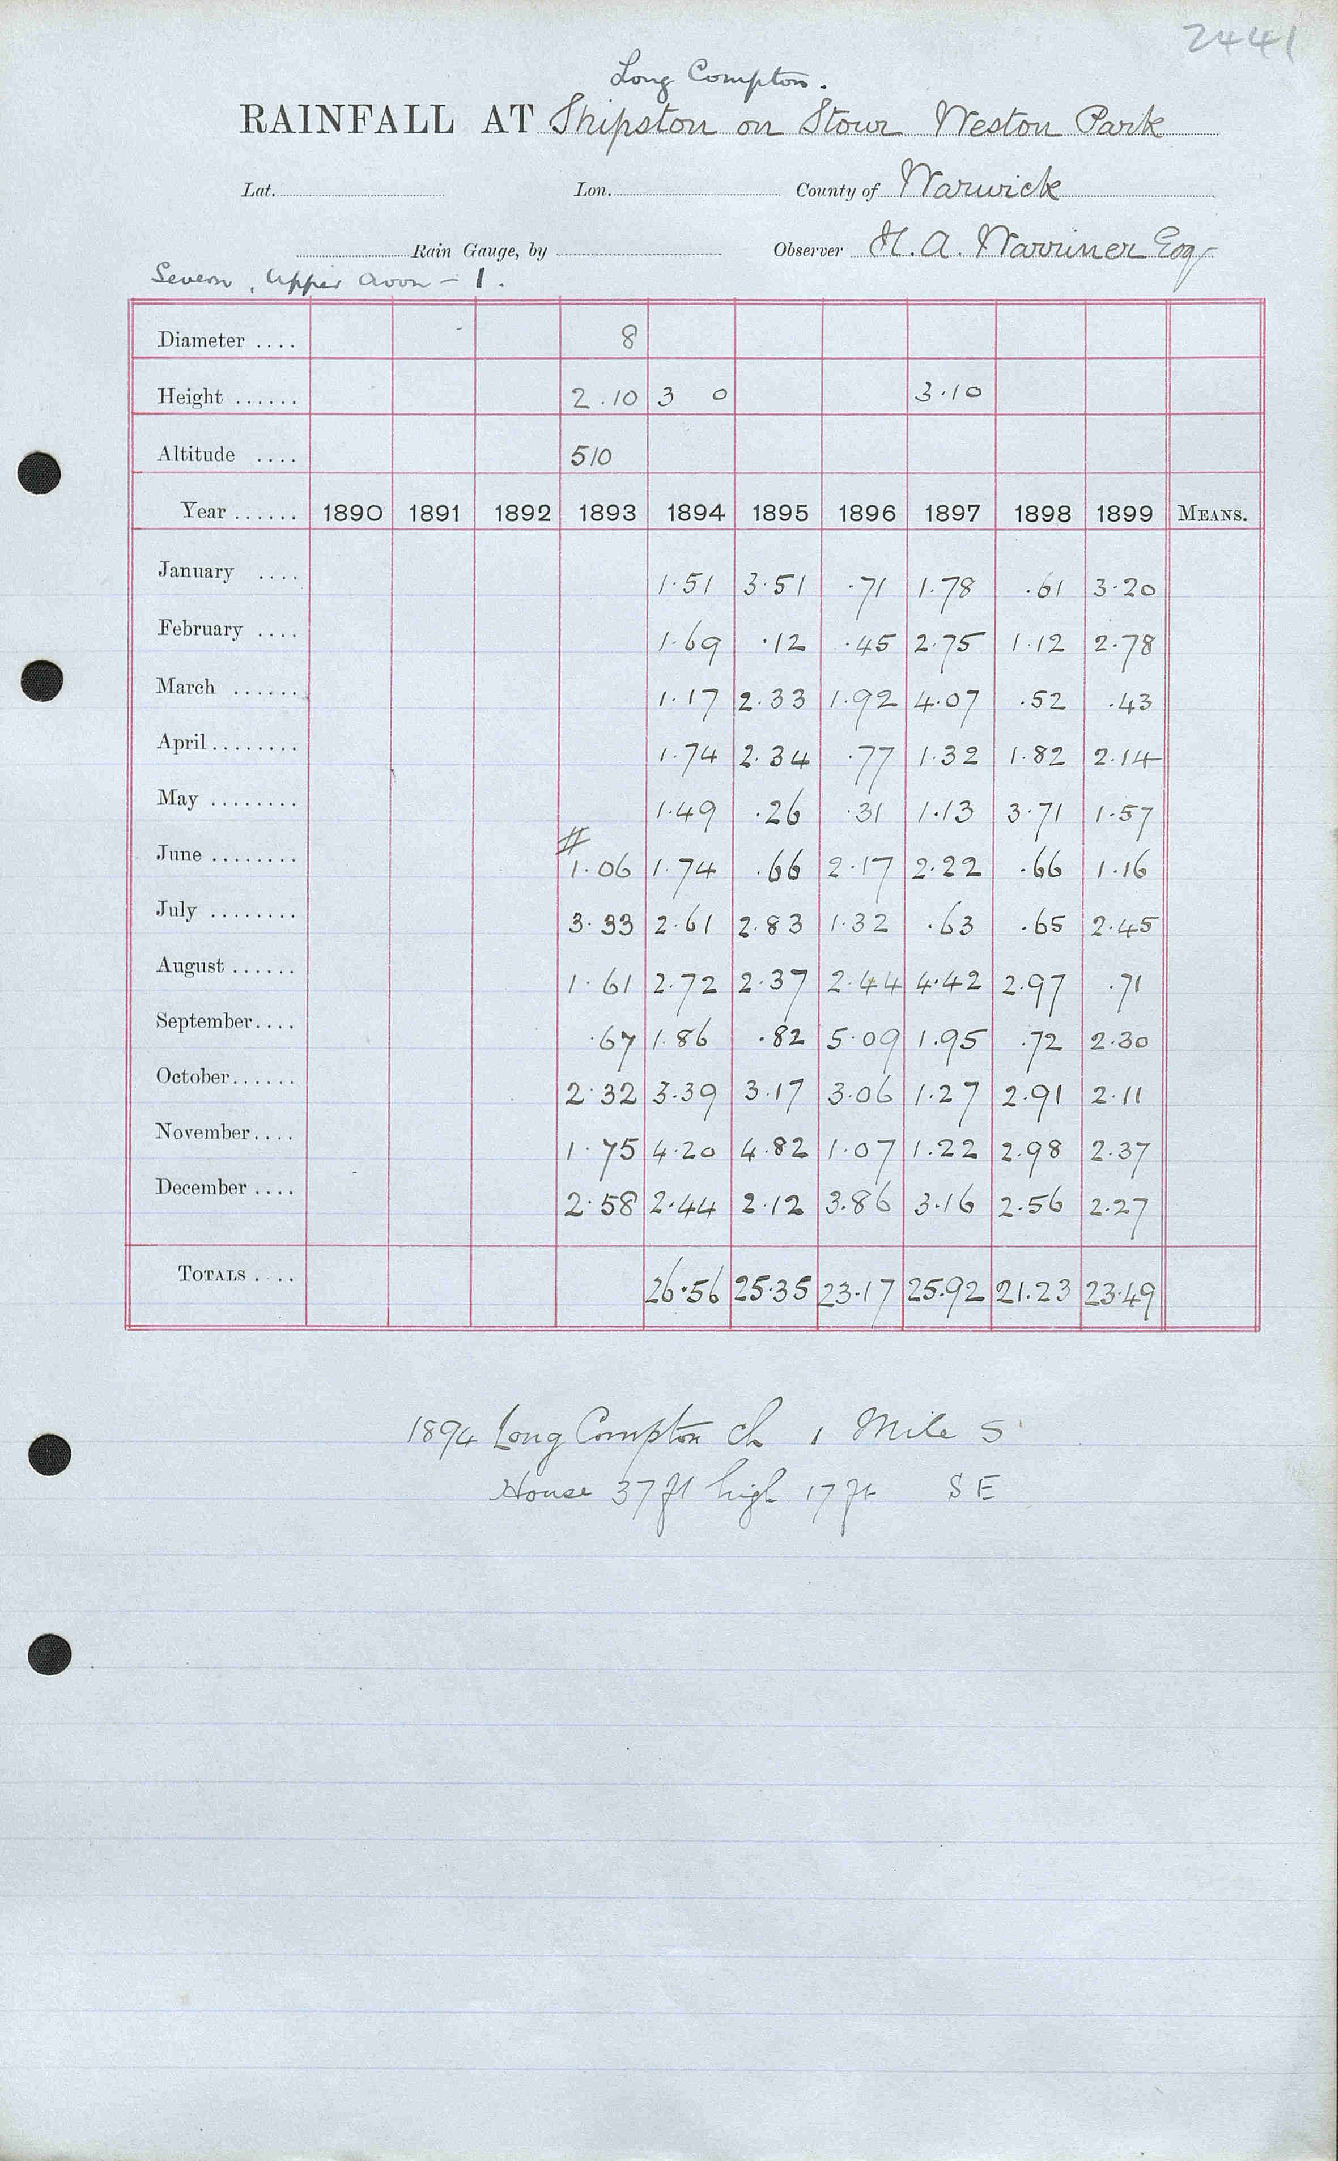 2441
Long Compton.
RAINFALL AT Shipston on Stour Weston Park
Lat. Lon. County of Warwick
Rain Gauge, by Observer H. A. Warriner Esq
Severn, Upper Avon - 1.
Diameter .... 8
Height ...... 2.10 3 0 3.10
Altitude .... 510
Year ...... 1890 1891 1892 1893 1894 1895 1896 1897 1898 1899 MEANS.
January .... 1.51 3.51 .71 1.78 .61 3.20
February .... 1.69 .12 .45 2.75 1.12 2.78
March ...... 1.17 2.33 1.92 4.07 .52 .43
April ........ 1.74 2.34 .77 1.32 1.82 2.14
May ........ 1.49 .26 .31 1.13 3.71 1.57
#
June ........ 1.06 1.74 .66 2.17 2.22 .66 1.16
July ........ 3.33 2.61 2.83 1.32 .63 .65 2.45
August ...... 1.61 2.72 2.37 2.44 4.42 2.97 .71
September.... .67 1.86 .82 5.09 1.95 .72 2.30
October...... 2.32 3.39 3.17 3.06 1.27 2.91 2.11
November.... 1.75 4.20 4.82 1.07 1.22 2.98 2.37
December .... 2.58 2.44 2.12 3.86 3.16 2.56 2.27
TOTALS .... 26.56 25.35 23.17 25.92 21.23 23.49
1894 Long Compton ch 1 Mile S
House 37 ft high 17 ft SE